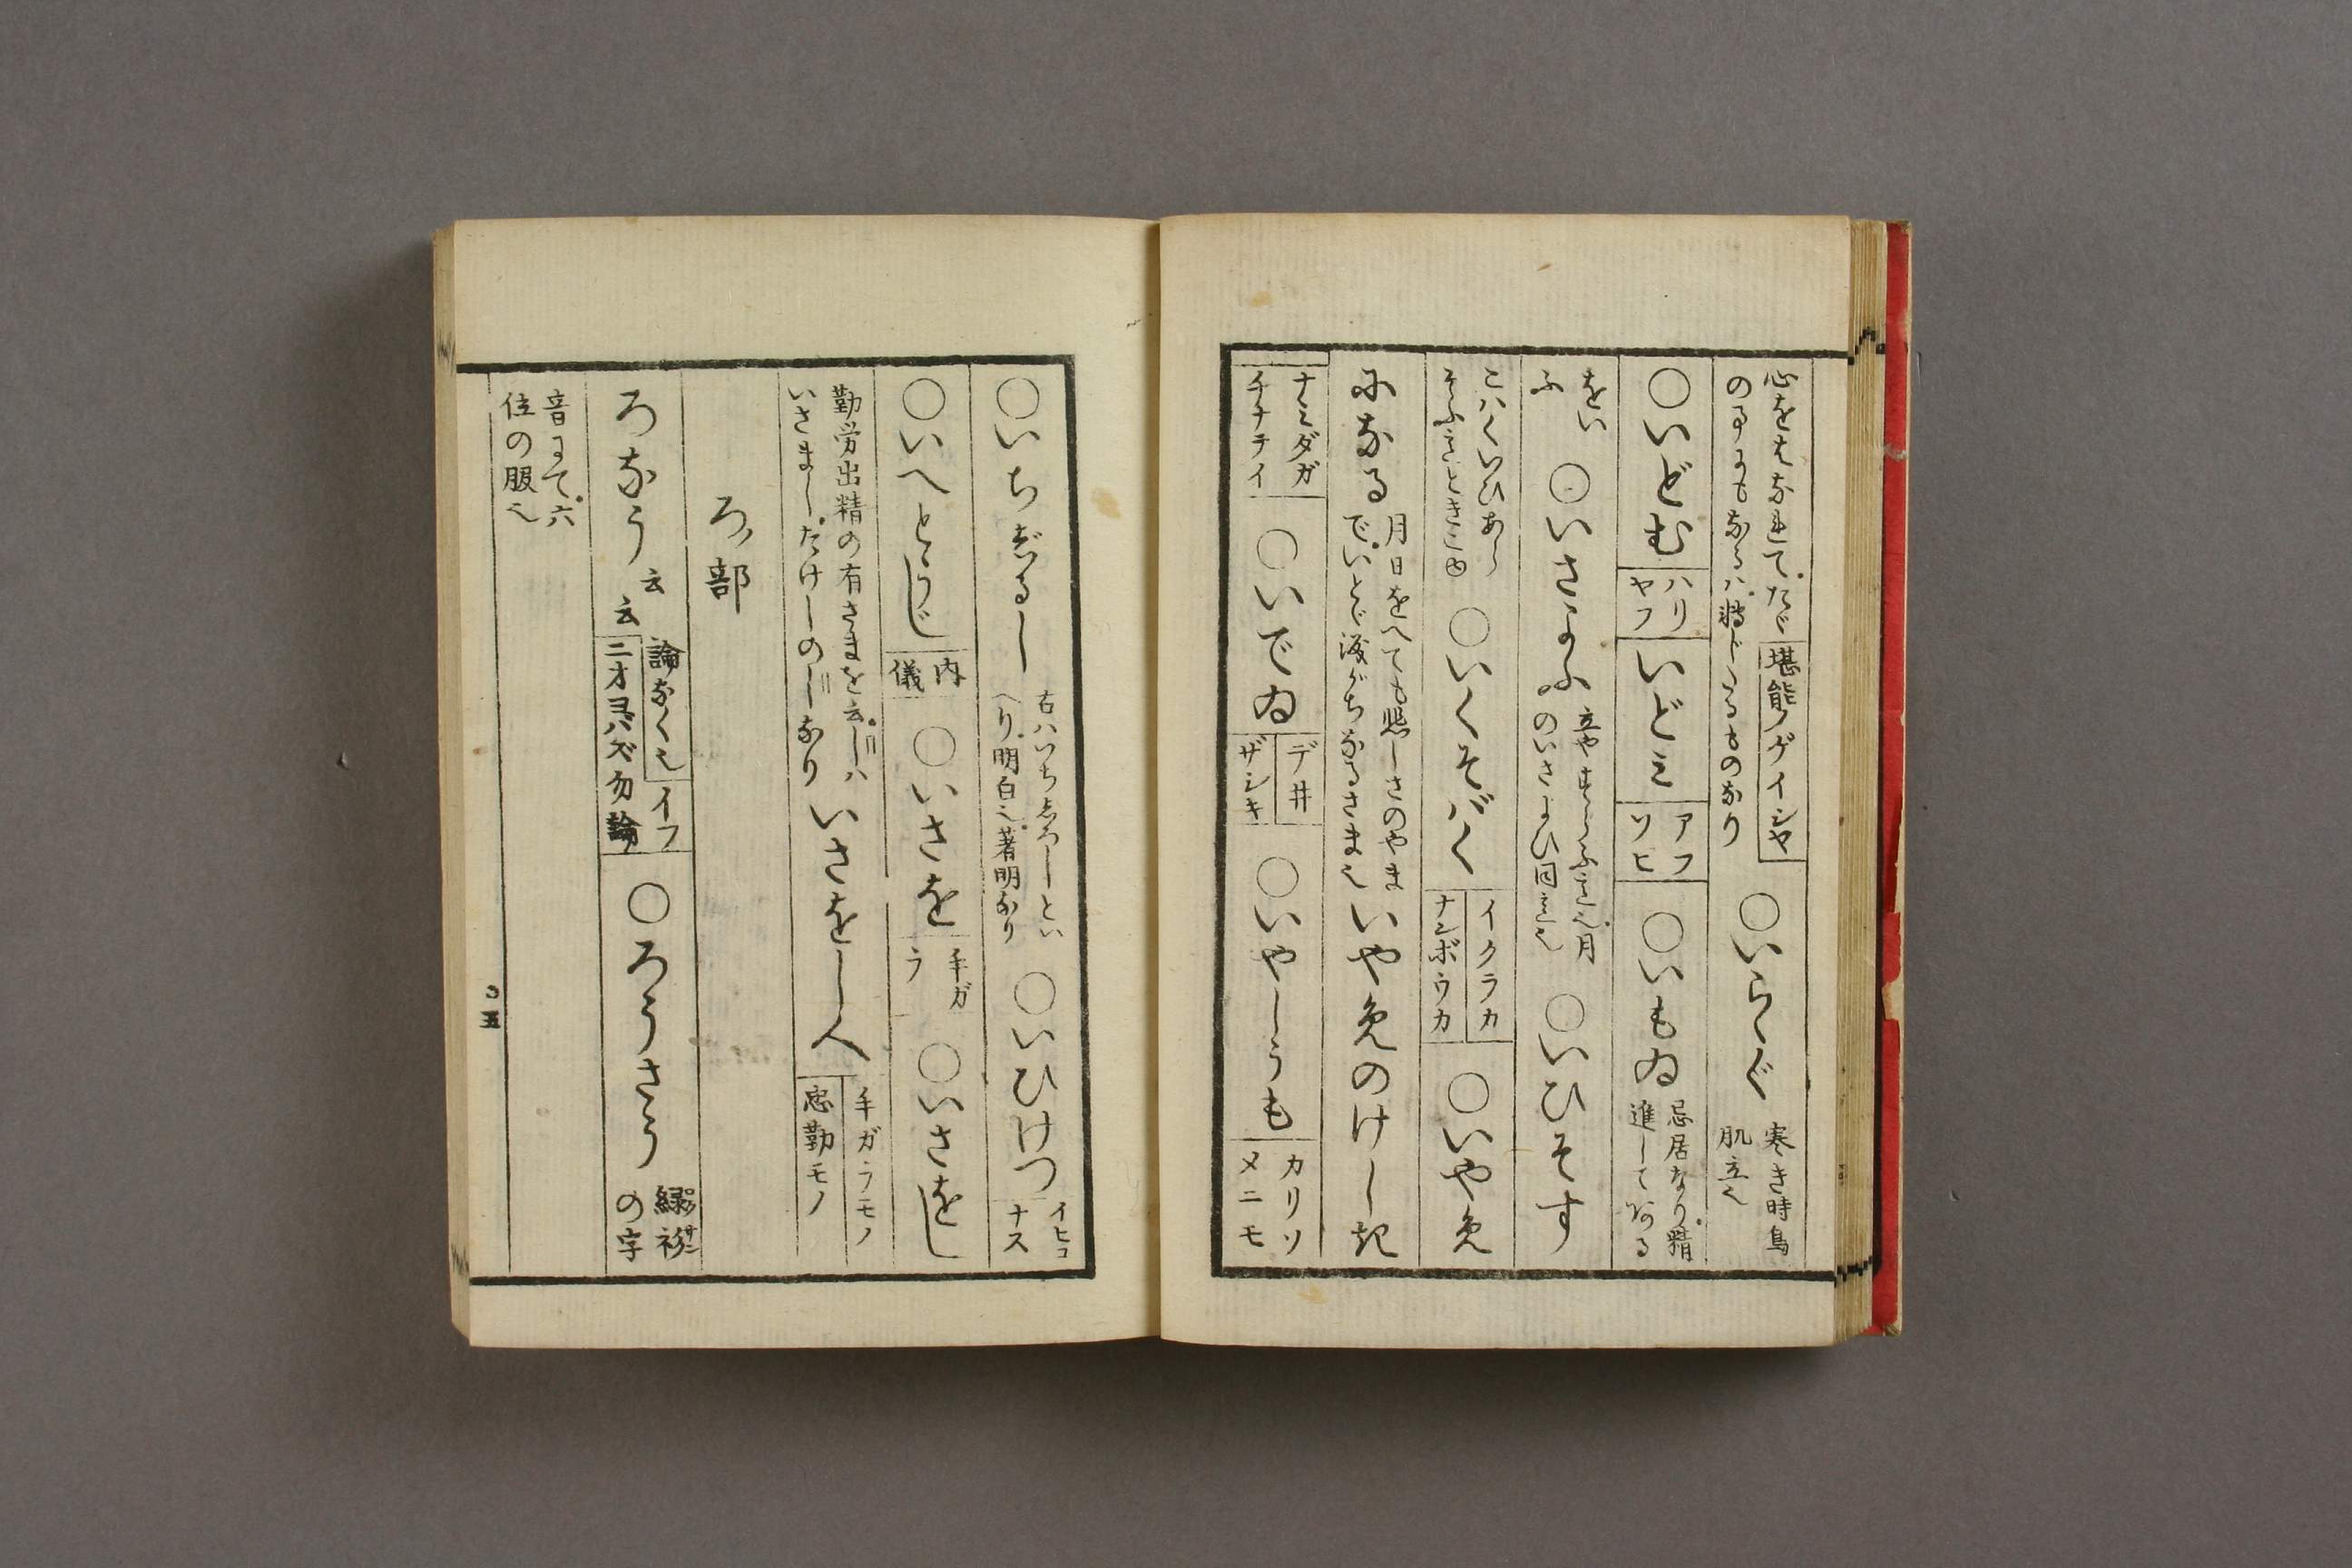 心をもなれて。たゞ 堪能ノゲイシヤ
のるにもなるハ
○いらゝぐ
寒き時鳥
肌立也
○いどむ
ハリ
ヤフ
いどミ
アフ
ソヒ
○いもゐ
忌居なり。精
進してゐる
をい
ふ
○いさよふ
のいさよひ同じ也
○いひそす
こハくいひあ
○いくそバく
イクラカ
ナンボウカ
○いや免
になる
月日をへても悲しさのやま
でいとゞ涙がちなるさま也
いや免のけしき
ナミダガ
チナテイ
○いでゐ
デ井
ザシキ
○いやしうも
カリソ
メニモ
○いちじるし
右ハいちしろしとい
へり。明白也。著明なり
○いひけつ
イヒコ
ナス
○いへとうじ
内
儀
○いさを
手ガ
ラ
○いさをし
勤労出精の有さまを云。しハ
いさまし。たけしのしなり
いさをし人
手ガラモノ
忠勤モノ
ろノ部
ろなう云云
論なく也 イフ
ニオヨバズ勿論
○ろうさう
緑衫
の字
音にて。六
位の服也
○五